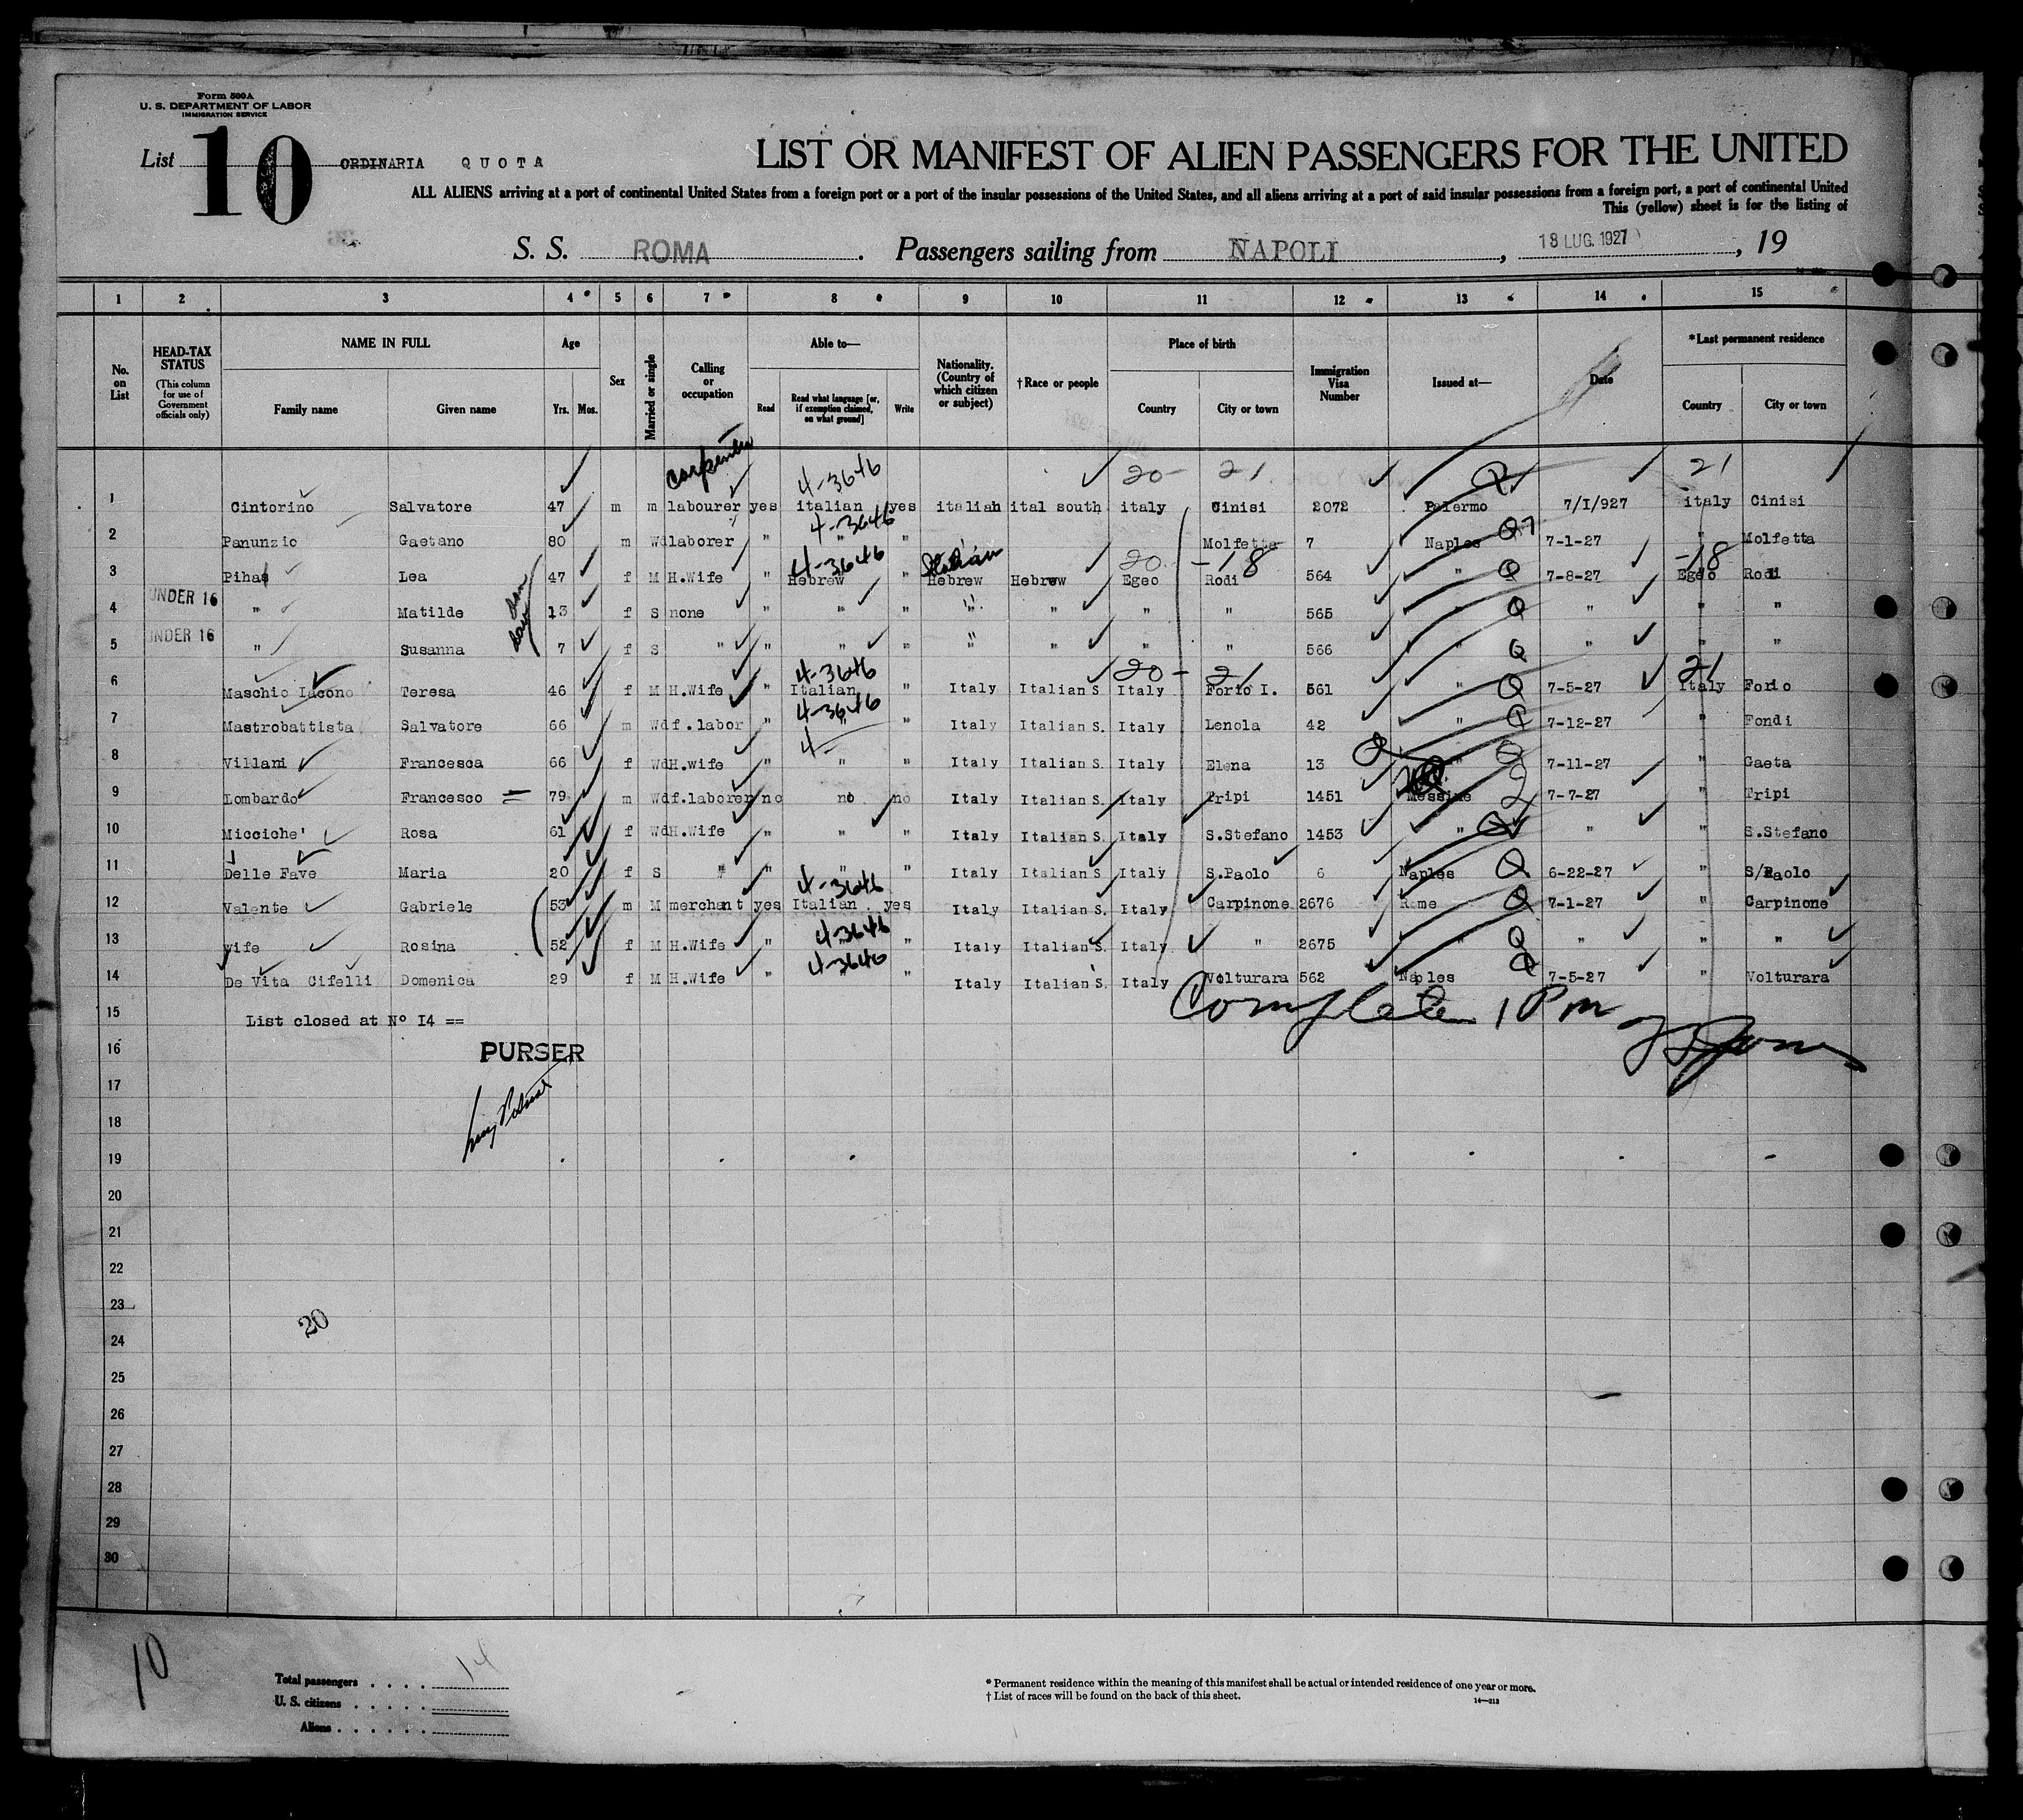 Form 500A
U. S. DEPARTMENT OF LABOR
IMMIGRATION SERVICE
List 10 ORDINARIA QUOTA
LIST OR MANIFEST OF ALIEN PASSENGERS FOR THE UNITED
ALL ALIENS arriving at a port of continental United States from a foreign port or a port of the insular possessions of the United States, and all aliens arriving at a port of said insular possessions from a foreign port, a port of continental United
This (yellow) sheet is for the listing of
S. S. ROMA . Passengers sailing from NAPOLI , 18 LUG. 1927 , 19
1 2 3 4 5 6 7 8 9 10 11 12 13 14 15
No. on List
HEAD-TAX STATUS
(This column for use of Government officials only)
NAME IN FULL
Family name Given name
Age
Yrs. Mos.
Sex
Married or single
Calling or occupation
Able to—
Read Read what language [or, if exemption claimed, on what ground] Write
Nationality. (Country of which citizen or subject)
† Race or people
Place of birth
Country City or town
Immigration Visa Number
Issued at—
Date
* Last permanent residence
Country City or town
carpenter 4-3646 20- 21 Q 21
1 Cintorino Salvatore 47 m m labourer yes italian yes italian ital south italy Cinisi 2072 Palermo 7/I/927 italy Cinisi
4-3646
2 Panunzio Gaetano 80 m Wd laborer " " " Molfetta 7 Naples Q 7-1-27 " Molfetta
4-3646 Italian 20 -18 -18
3 Pihas Lea 47 f M H.Wife " Hebrew " Hebrew Hebrew Egeo Rodi 564 " Q 7-8-27 Egeo Rodi
4 UNDER 16 " Matilde 13 f S none " " " " " " " 565 " Q " " "
5 UNDER 16 " Susanna 7 f S " " " " " " " " 566 " Q " " "
4-3646 20- 21 21
6 Maschio Iacono Teresa 46 f M H.Wife " Italian " Italy Italian S. Italy Forio I. 561 " Q 7-5-27 Italy Forio
4-3646
7 Mastrobattista Salvatore 66 m Wd f.labor " " " Italy Italian S. Italy Lenola 42 " Q 7-12-27 " Fondi
4-
8 Villani Francesca 66 f Wd H.wife " " " Italy Italian S. Italy Elena 13 " Q 7-11-27 " Gaeta
9 Lombardo Francesco 79 m Wd f.laborer no no no Italy Italian S. Italy Tripi 1451 Messine 7-7-27 " Tripi
10 Micciche' Rosa 61 f Wd H.Wife " " " Italy Italian S. Italy S.Stefano 1453 " Q " " S.Stefano
11 Delle Fave Maria 20 f S " " " " Italy Italian S Italy S.Paolo 6 Naples Q 6-22-27 " S/Paolo
4-3646
12 Valente Gabriele 53 m M merchant yes Italian yes Italy Italian S. Italy Carpinone 2676 Rome Q 7-1-27 " Carpinone
4-3646
13 wife Rosina 52 f M H.Wife " " " Italy Italian S. Italy " 2675 " Q " " "
4-3646
14 De Vita Cifelli Domenica 29 f M H.Wife " " Italy Italian S. Italy Volturara 562 Naples Q 7-5-27 " Volturara
15 List closed at Nº I4 ==
Complete 1 Pm
16 PURSER
17
18
19
20
21
22
23
20
24
25
26
27
28
29
30
10
Total passengers . . . . 14
U. S. citizens . . . . .
Aliens . . . . . .
* Permanent residence within the meaning of this manifest shall be actual or intended residence of one year or more.
† List of races will be found on the back of this sheet.
14—213